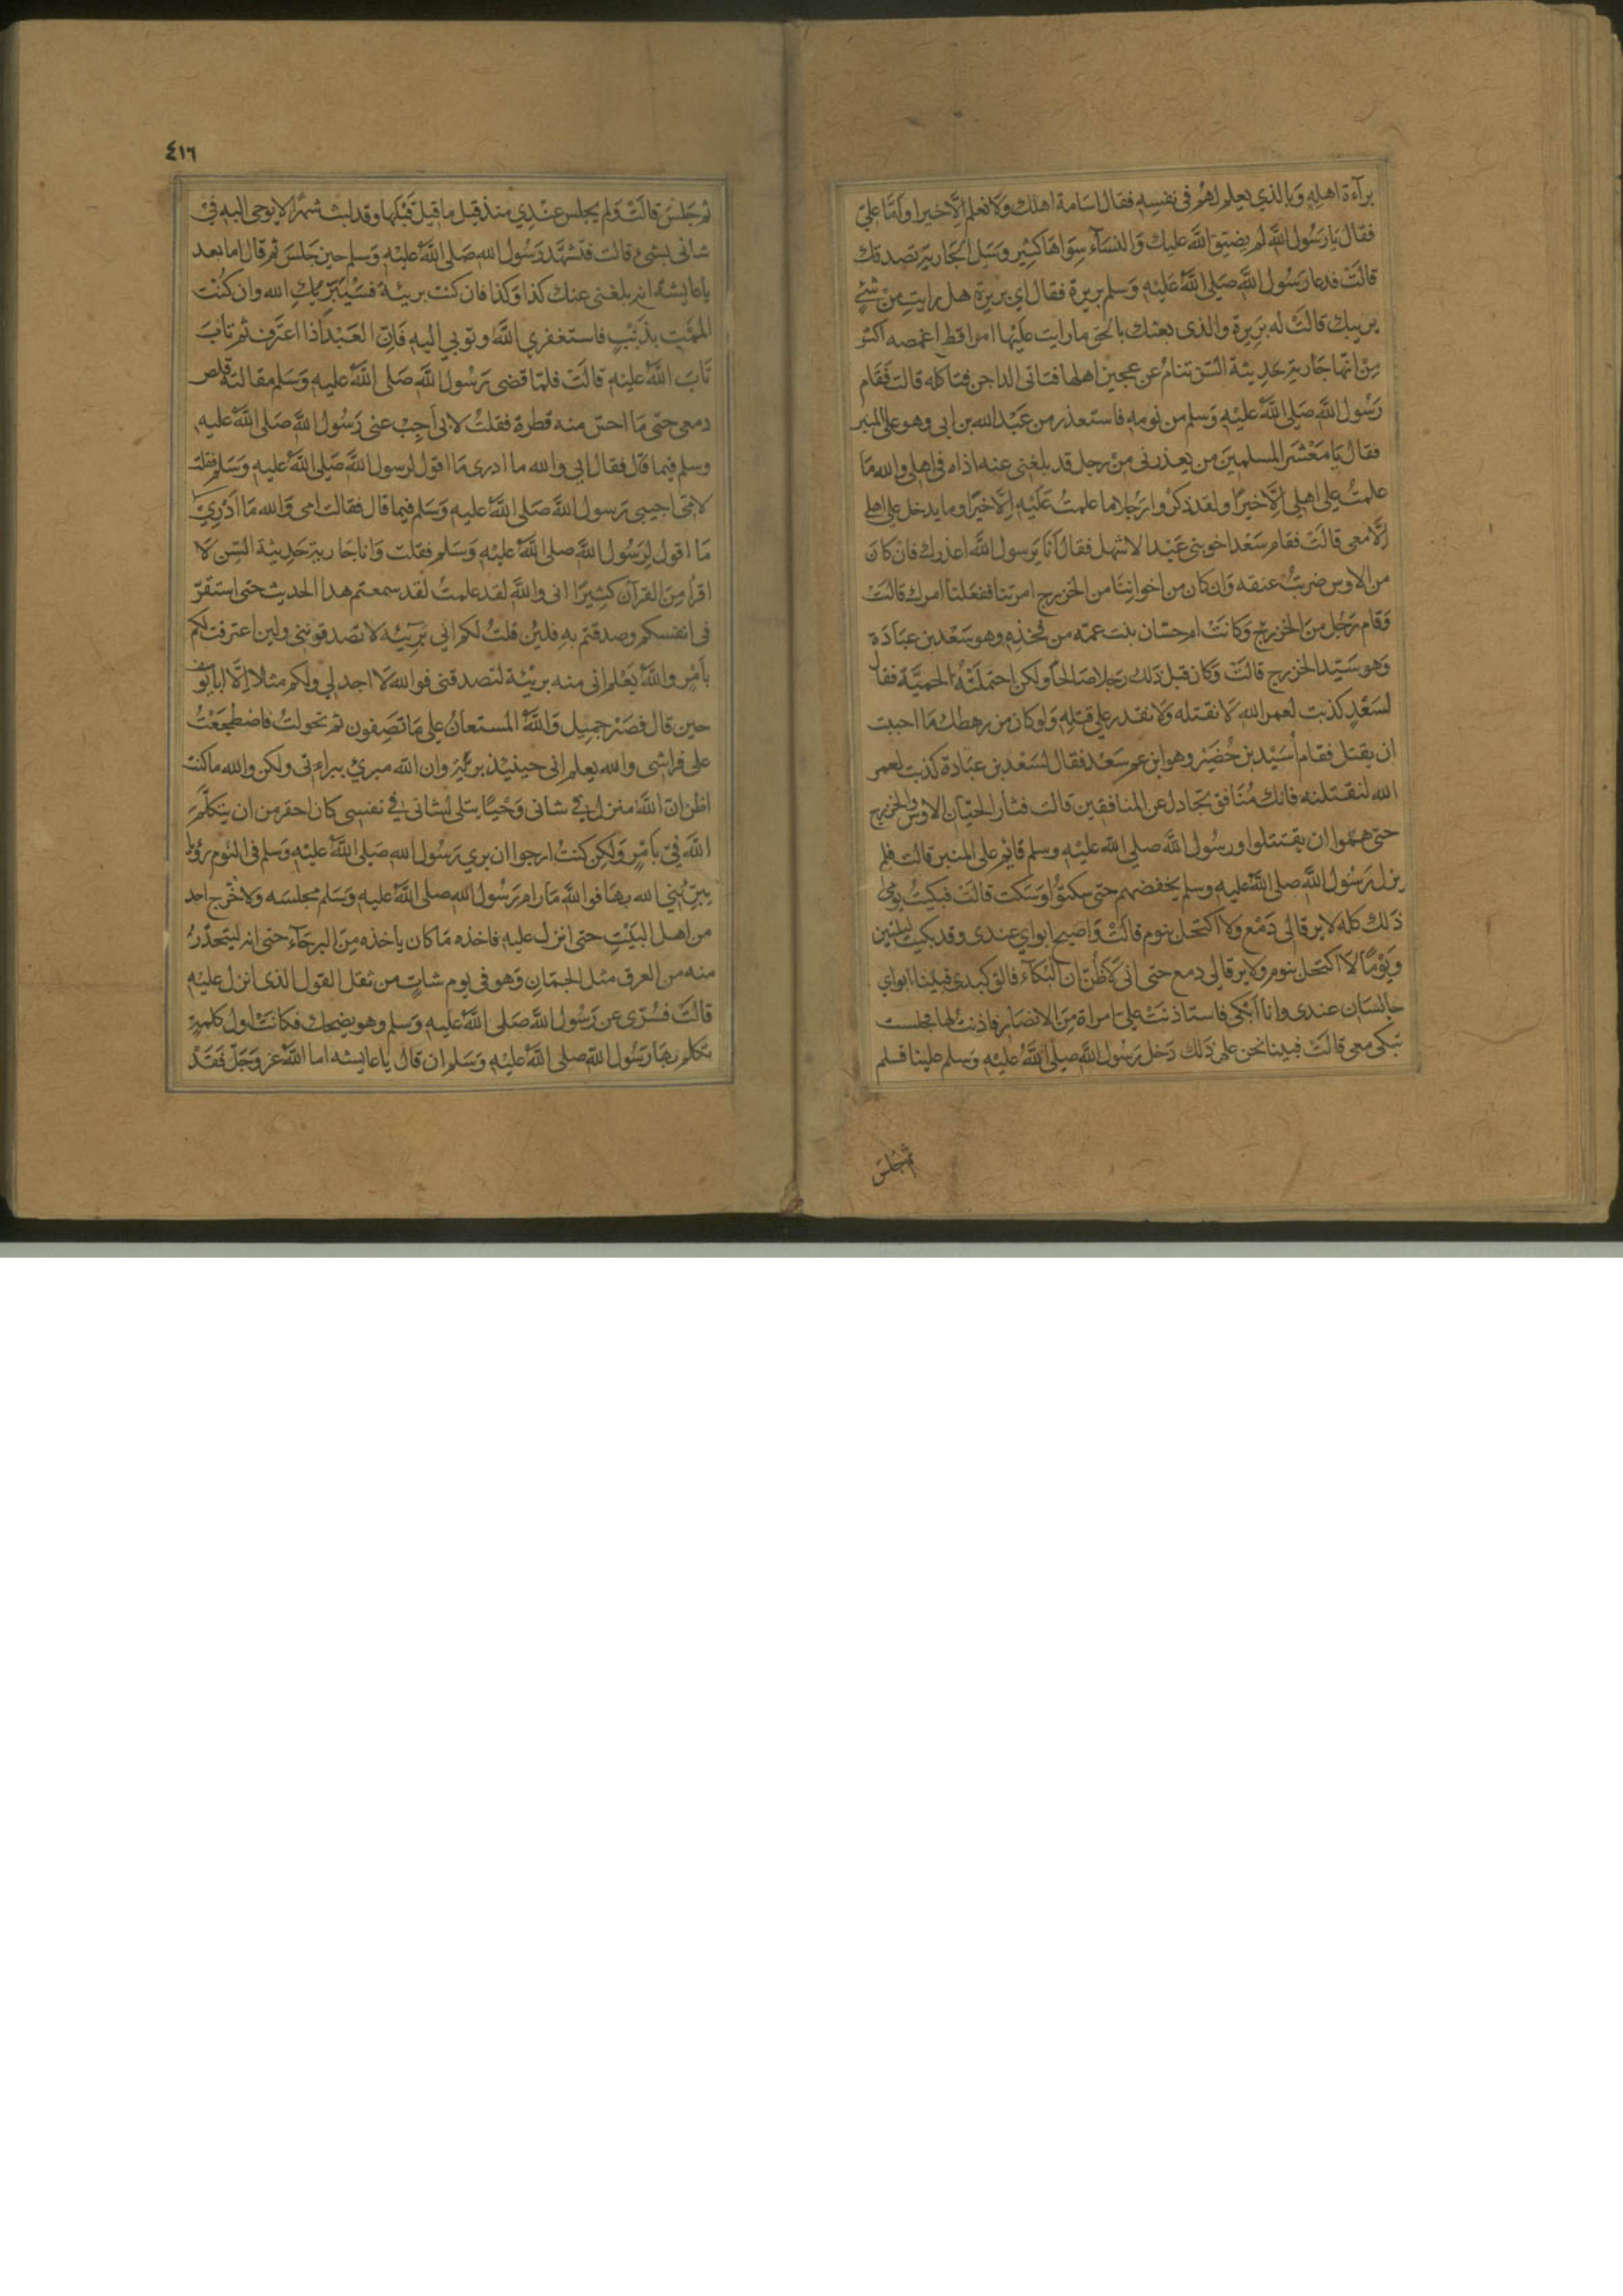 براءة اهله وَبالذي يعلم لهُم فى نفسِهِ فقال اسَامة اهلك وَلا نعلم اِلَّا خيرا وَامَّا علىّ
فقال يَا رَسُول اللهِ لم يضيّق اللهُ عليك وَالنسَآء سِوَاهَا كثِير وَسَل الجَارية تصدقك
قالَتْ فدعا رَسُول اللهِ صَلى اللهُ عَليْهِ وَسلم بريرة فقال اي بَرِيرة هل رايتِ مِنْ شئٍ
يريبك قالَتْ له بَرِيرة والذى بعثك بالحق ما رايت عليْها امرا قط اغمصه اكثر
مِنْ انّها جَارية حَدِيثة السّن تنامُ عن عجين اهلها فتاتى الداجن فتاكله قالت فَقَام
رَسُول اللهِ صَلى اللهُ عليْهِ وَسلم من نومه فاستعذر من عَبْد الله بن ابى وهو على المنبر
فقال يَا مَعْشر المسلمِينَ من يعذرنى مِنْ رجل قد بلغنى عنه اذاه فى اهلى والله مَا
علمتُ على اهلى اِلَّا خيرًا ولقد ذكروا رَجُلا ما علمتُ عَلَيْهِ اِلَّا خيْرًا وما يدخل على اهلى
اِلَّا معى قالَتْ فقام سَعْد اخو بنى عَبْد الاشهل فقال اَنَا يَرسول اللهِ اعذرك فان كَانَ
من الاوس ضربْتُ عنقه وَان كان من اخوانِنَا من الخزرج امرتنا ففعلنا امرك قالَتْ
وَقام رَجُل منَ الخزرج وَكانَتْ ام حسّان بنت عمّه من فخذِهِ وهو سَعْد بن عبَادَة
وَهو سَيّد الخزرج قالَتْ وَكان قبل ذلك رَجلا صَالحًا ولكن احتملَتْهُ الحميَّة فقال
لسَعْدٍ كذبت لعمر الله لَا تقتله وَلَا تقدر على قتلِهِ وَلو كان من رهطك مَا احببت
ان يقتل فقام اُسَيْد بن حُضَيْر وهو ابن عم سَعْد فقال لسَعْد بن عبَادة كذبت لعمر
الله لنقتلنه فانك مُنَافق تجادل عن المنافقين قالت فثار الحيّان الاوس والخزرج
حتى همّوا ان يقتتلوا ورسُول اللهِ صلى الله عليْهِ وسلم قايم على المنبر قالت فلم
يزل رَسُول اللهِ صلى اللهُ عليهِ وسلم يخفضهم حتى سكتوُا وَسَكت قالَتْ فبكيْتُ يومى
ذلك كله لا يرقا لى دَمْع ولا اكتحل بنوم قالَتْ وَاصبح ابواي عندى وقد بكيت ليلتين
وَيَوْمًا لا اكتحل بنوم ولا يرقا لى دمع حتى انى لَاظُنّ ان البكآء فالق كبدى فبينا ابواي
جالسَان عندى وانا اَبْكى فاستاذنَتْ علىّ امراة مِنَ الانصَار فاذنتُ لها فجلست
تبكى معى قالَتْ فبينا نحن على ذلك دَخل رَسُول اللهِ صلى اللهُ عليْهِ وَسلم علينا فسلم
ثم جَلسَ
٤١٦
ثم جَلسَ قالَتْ وَلم يجلس عنْدِي منذ قيل ما قيل قبْلها وقد لبث شهْرًا لا يوحى اليه فِىْ
شانى بشىء قالت فتشهّد رَسُول الله صَلى اللهُ عليْهِ وَسلم حين جَلسَ ثم قال اما بعد
يا عايشة انه بلغنى عنك كذا وَكذا فان كنت بريئة فسَيُبَرّيكِ الله وان كُنْت
المَمْتِ بذَنْبٍ فاستغفري اللهَ وتوبي اليهِ فَاِنّ العَبْد اذا اعترف ثم تابَ
تَابَ اللهُ عليْهِ قالَتْ فلمّا قضى رَسُول اللهِ صَلى اللهُ عليهِ وَسَلم مقالته قلص
دمعى حتى مَا احسّ منه قطرة فقلتُ لابى اَجِبْ عنى رَسُول اللهِ صَلى اللهُ عليه
وسلم فيما قال فقال ابى والله ما ادرى مَا اقول لرسول اللهِ صَلى اللهُ عليه وَسَلم فقلت
لامّى اجيبى رَسول اللهِ صَلى اللهُ عليه وَسَلم فيما قال فقالت امى وَالله مَا اَدْرِي
مَا اقول لِرَسُول اللهِ صلى اللهُ عليْهِ وَسَلم فقلت وَانا جَارية حَدِيثة السّن لَا
اقرأ مِنَ القرآن كثِيرًا انى والله لقد علمتُ لقد سمعتم هذا الحديث حتى استقرّ
فى انفسكم وصدقتم بهِ فلئن قلتُ لكم انى بَرِيئة لا تصَدقونى ولين اعترفت لكم
بأمْرٍ واللهُ يَعْلم انى منه بريْئة لتصدقنى فوالله لَا اجد لى ولكم مثلا اِلَّا ابا يوسف
حين قال فصَبْر جمِيل وَاللهُ المستعانُ على مَا تَصِفون ثم تحولتُ فاضطجَعْتُ
على فراشى والله يعلم انى حينيذ بريْئة وان الله مبريْ ببراءتى ولكن والله ما كنت
اظن انّ اللهَ منزل فى شانى وَحْيًا يتلى لشانى في نفسِى كان احقر من ان يتكلّمَ
اللهُ فىّ بأمْرٍ وَلكِن كنتُ ارجو ان يري رَسُول الله صَلى اللهُ عليْهِ وَسَلم فى النوم رؤيا
يبرّئني الله بهَا فوالله مَا رام رَسُول الله صلى اللهُ عليْهِ وَسَلم مجلسَه ولا خَرج احد
من اهل البَيْتِ حتى انزل عليه فاخذه مَا كان ياخذه مِنَ البرحَآء حتى انه ليتحدّرُ
منه من العرق مثل الجمَانِ وَهو فى يوم شاتٍ من ثقل القول الذى انزل عليْهِ
قالَتْ فسُرّى عن رَسُول اللهِ صَلى اللهُ عليهِ وَسلم وهو يضحك فكانَتْ اول كلمةٍ
تكلم بهَا رَسُول اللهِ صلى اللهُ عليْهِ وَسَلم ان قال يا عايشه اما اللهُ عز وَجَلّ فَقَدْ